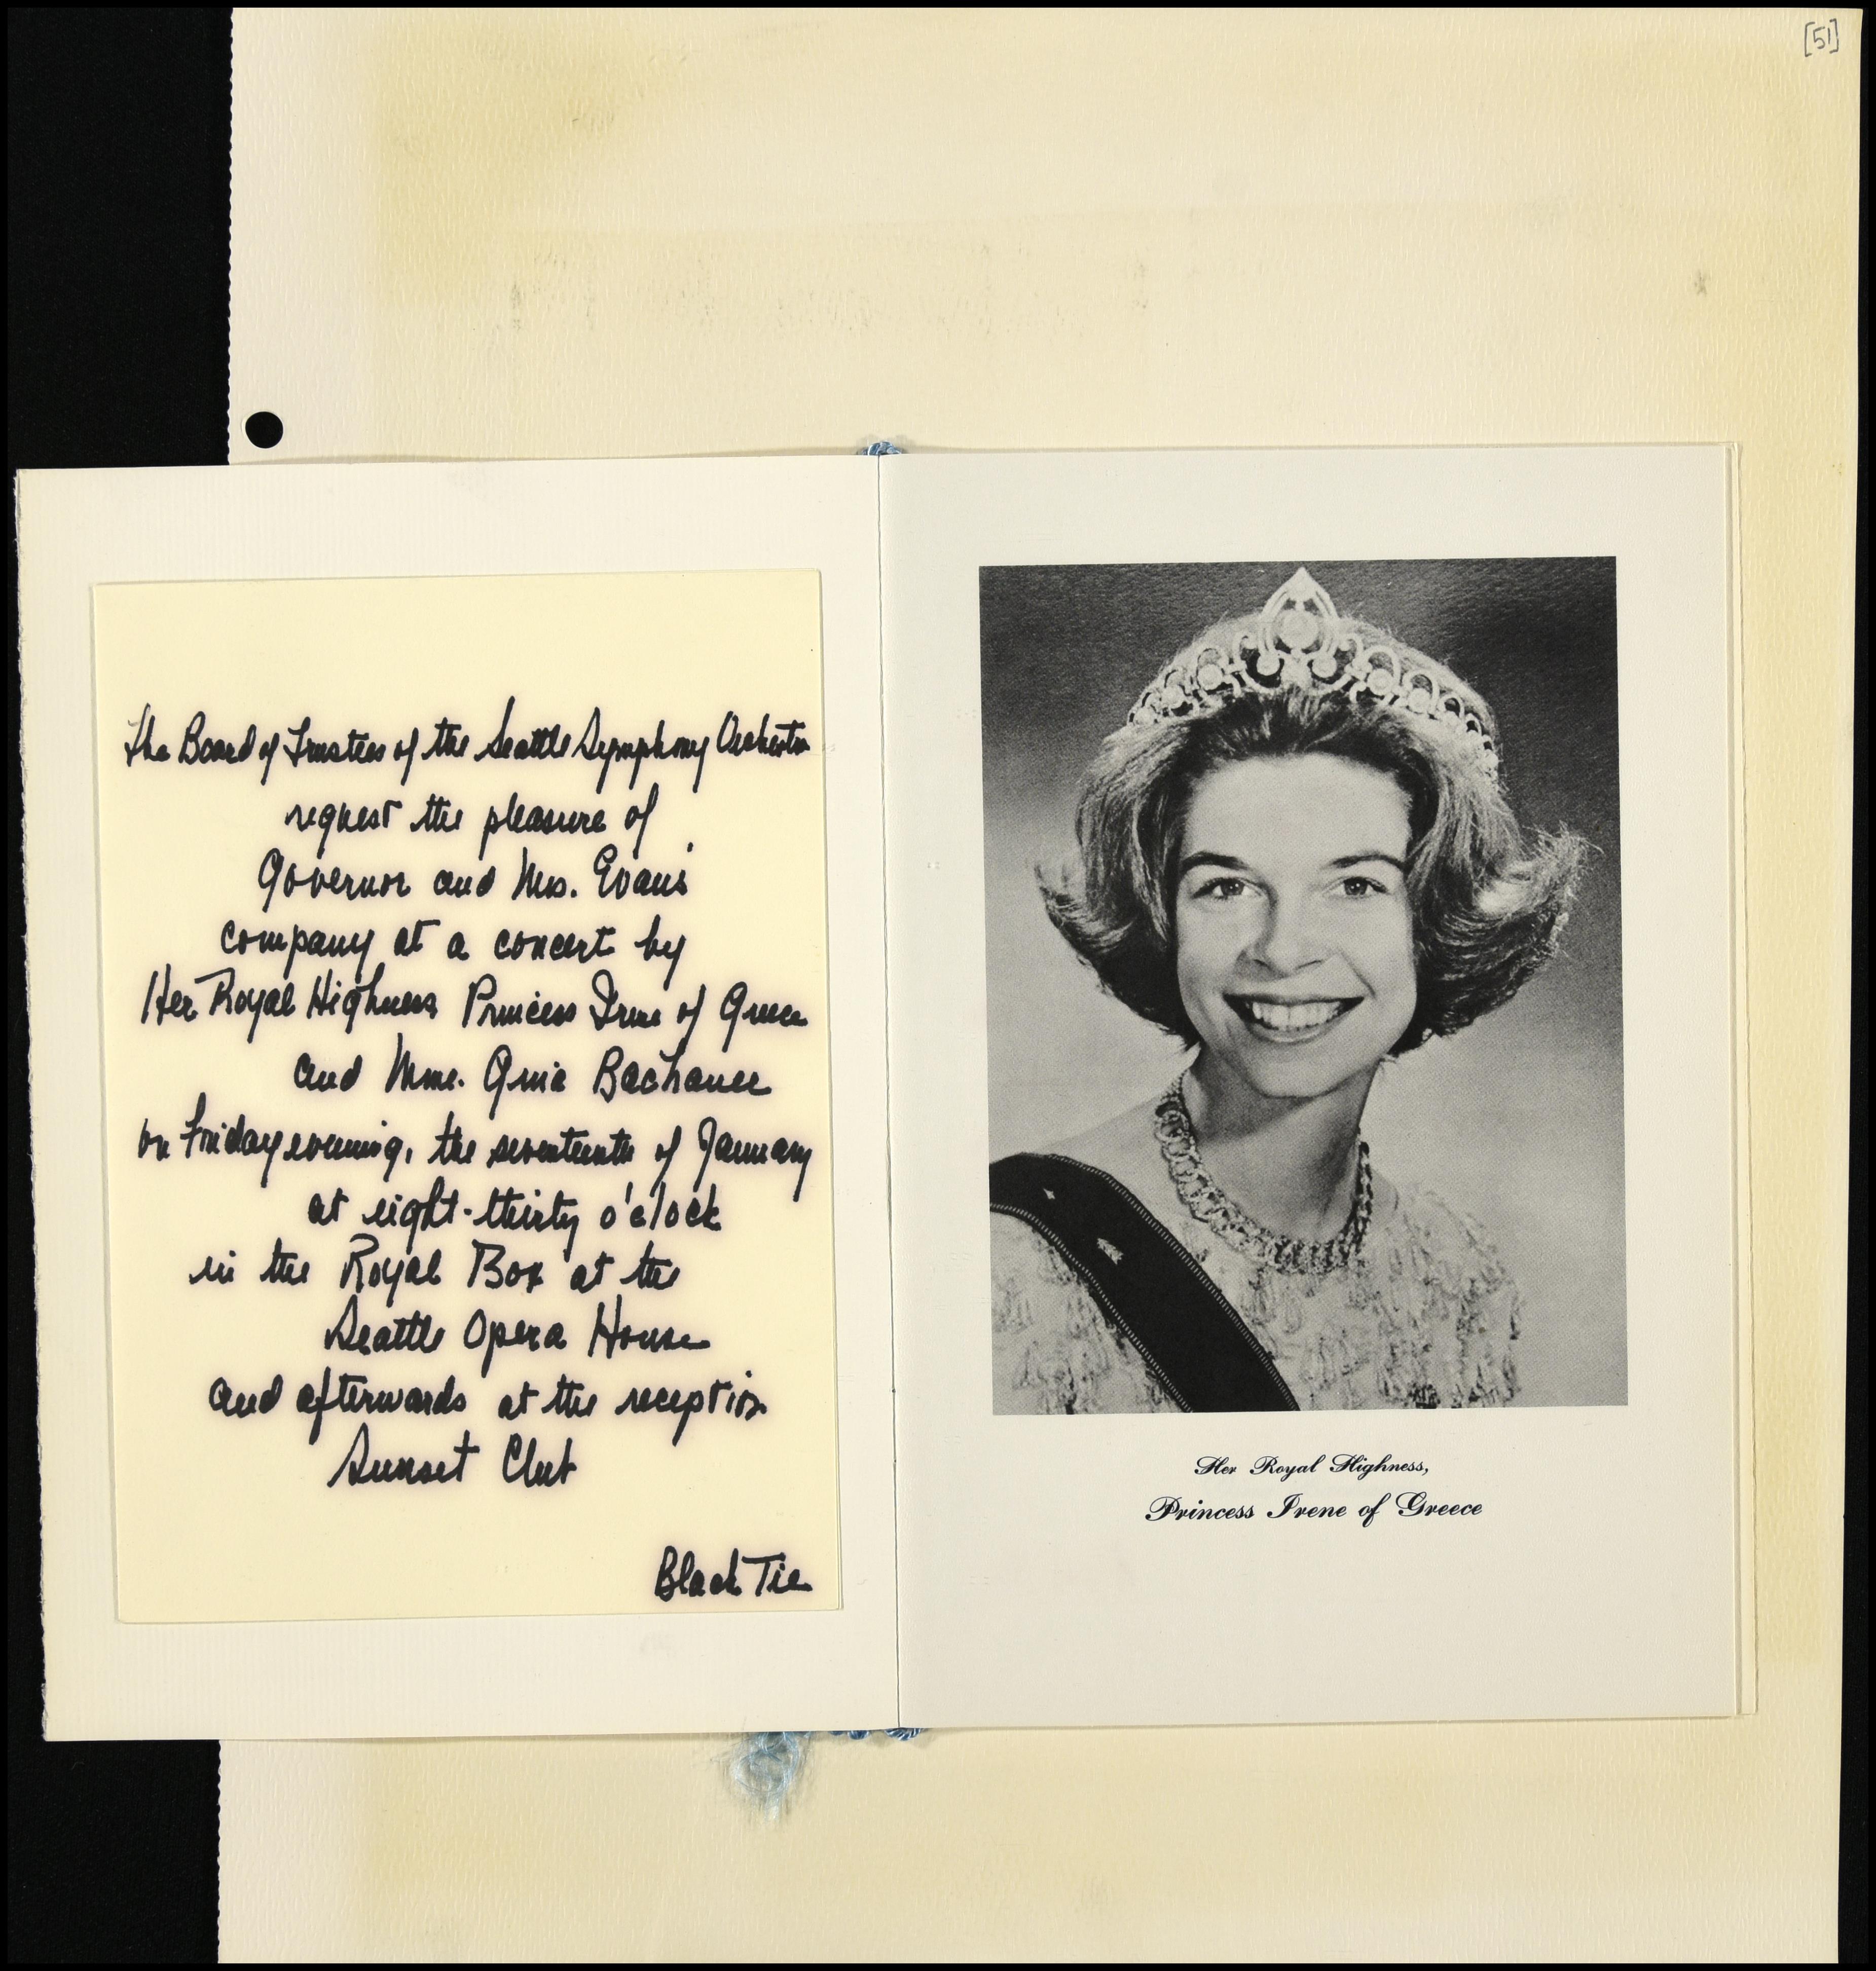 [51]
The Board of Trustees of the Seattle Symphony Orchestra
request the pleasure of
Governor and Mrs. Evans'
company at a concert by
Her Royal Highness Princess Irene of Greece
and Mme. Gina Bachauer
on Friday evening, the seventeenth of January
at eight-thirty o'clock
in the Royal Box at the
Seattle Opera House
and afterwards at the reception
Sunset Club
Black Tie
Her Royal Highness,
Princess Irene of Greece